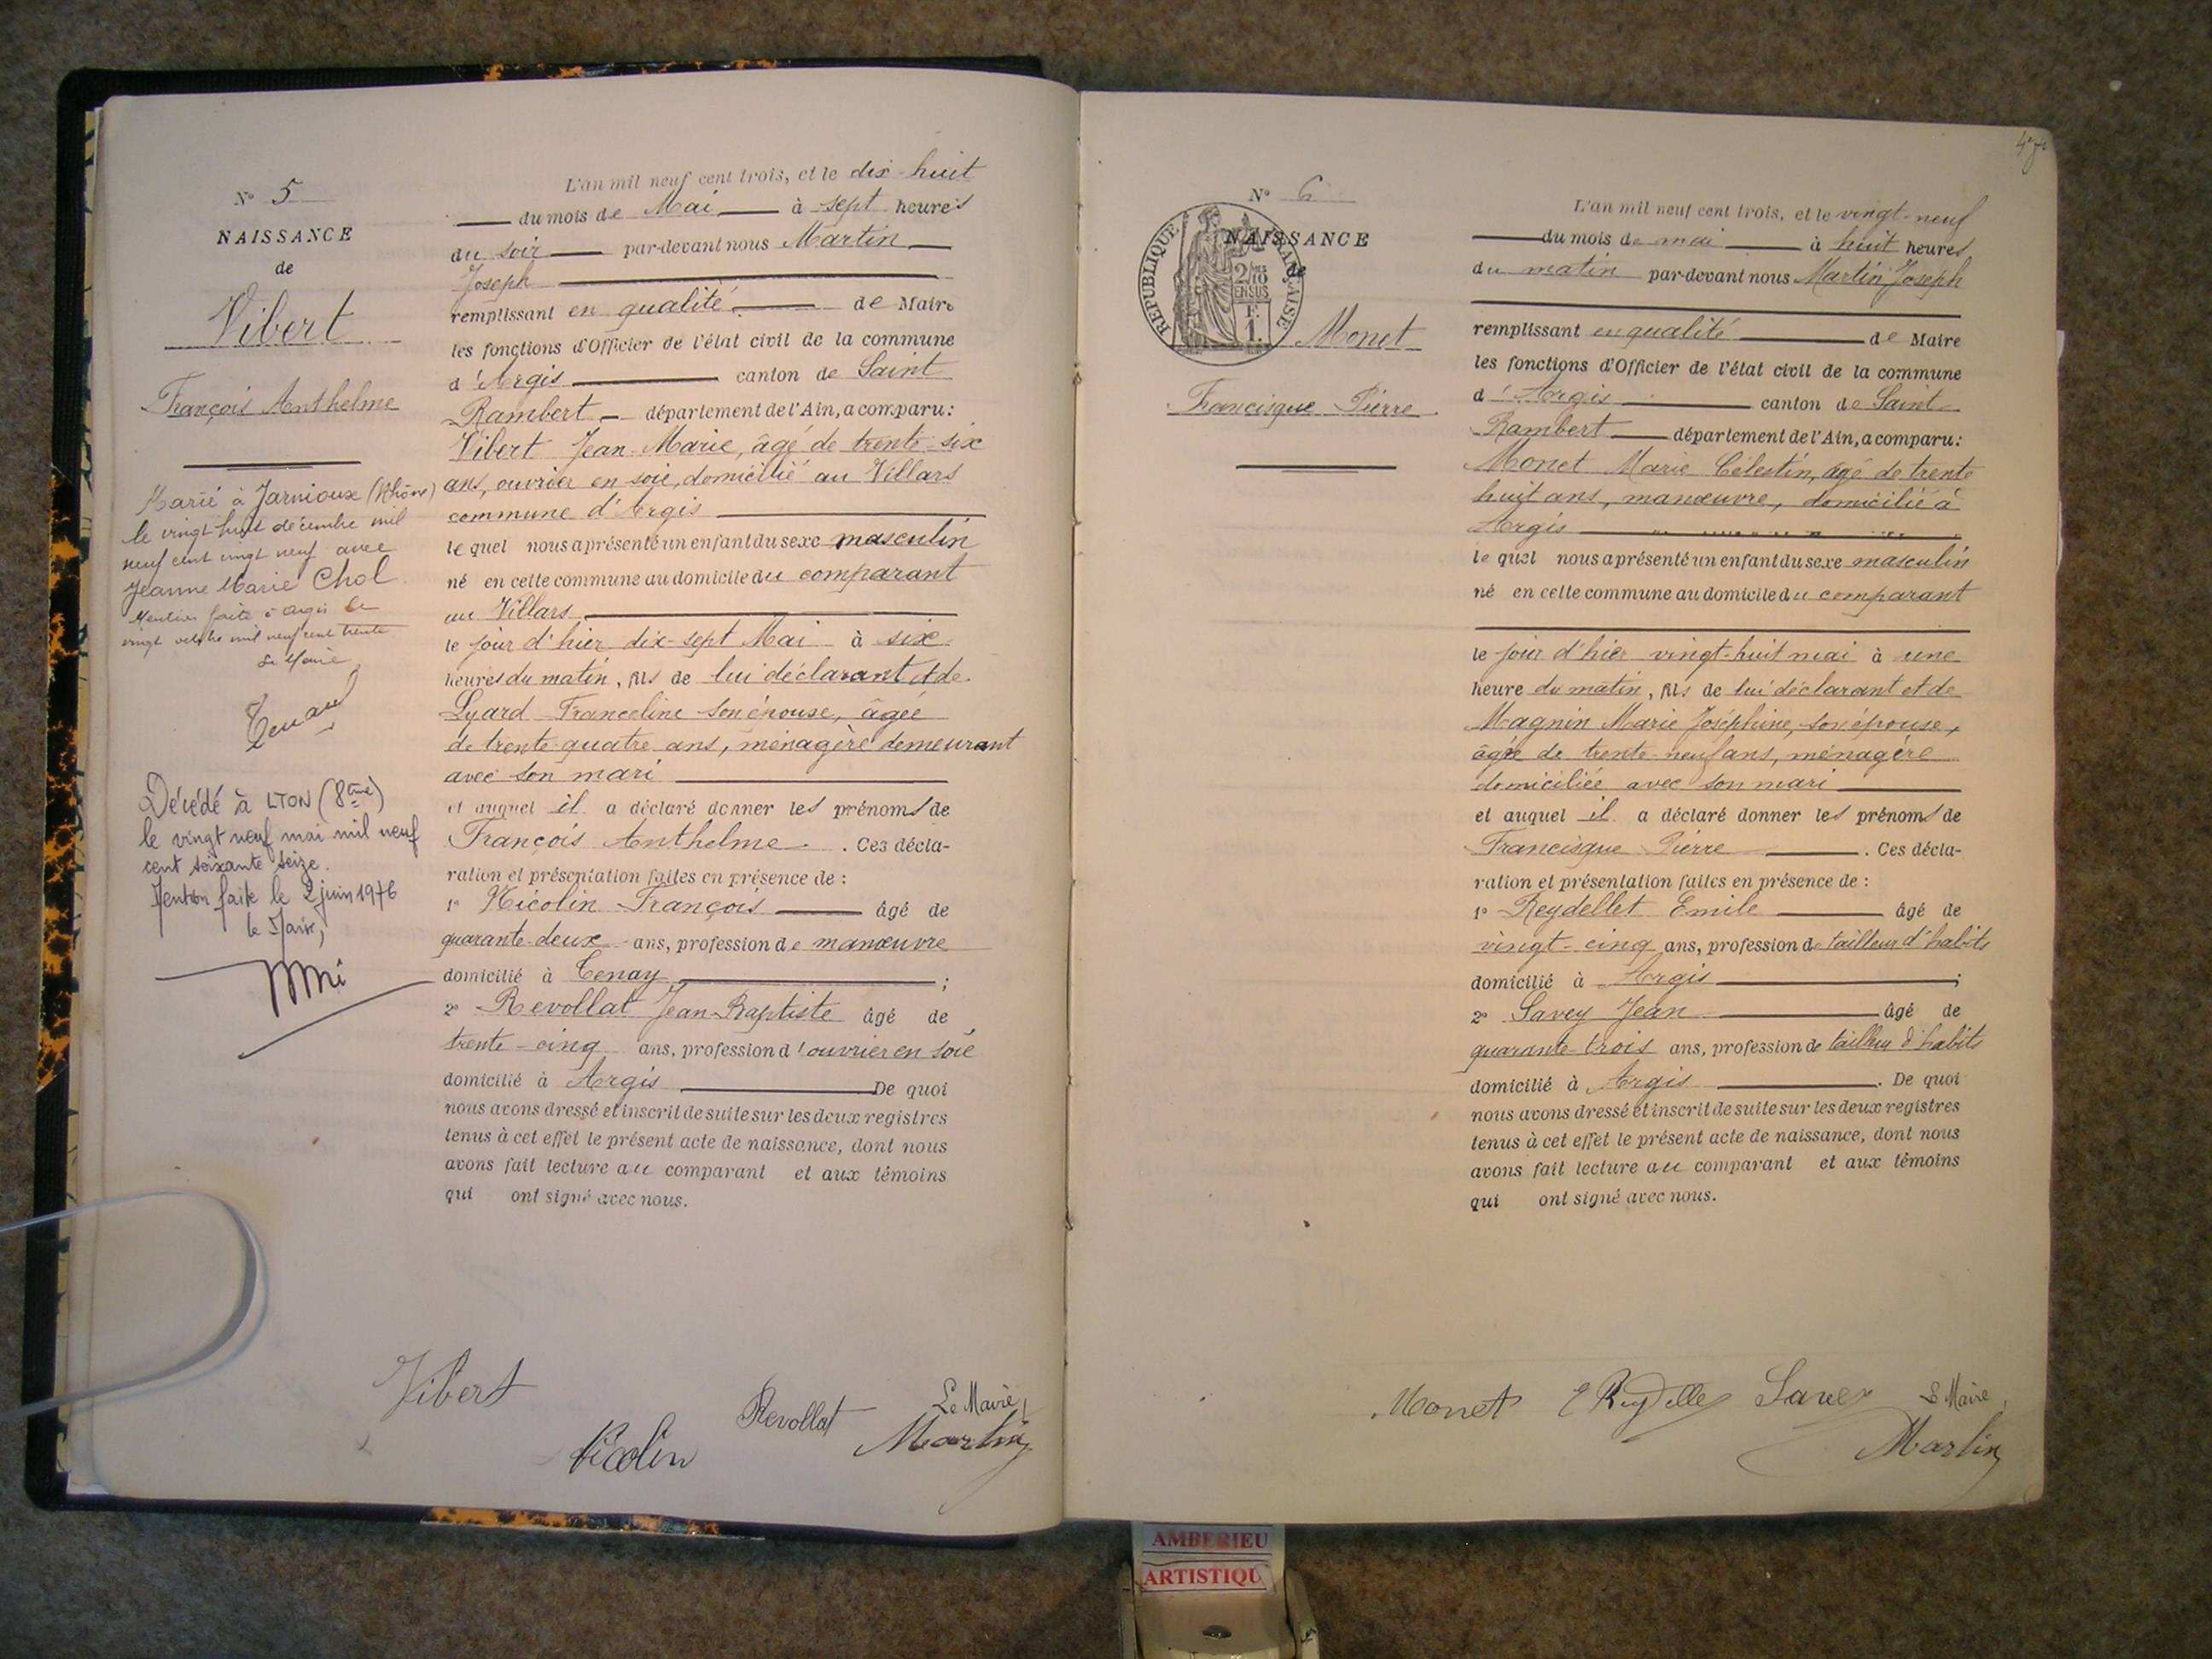 N° 5
NAISSANCE
de
Vibert
François Anthelme
Marié à Jarnioux (Rhône)
le vingt huit décembre mil
neuf cent vingt neuf avec
Jeanne Marie Chol
Mention faite à Argis le
vingt octobre mil neuf cent trente
Le Maire
Décédé à LYON (8ème)
le vingt neuf mai mil neuf
cent soixante seize.
Mention faite le 2 juin 1976
le Maire,
L'an mil neuf cent trois, et le dix-huit
du mois de Mai à sept heures
du soir par-devant nous Martin
Joseph
remplissant en qualité de Maire
les fonctions d'Officier de l'état civil de la commune
d'Argis canton de Saint
Rambert département de l'Ain, a comparu:
Vibert Jean-Marie, âgé de trente-six
ans, ouvrier en soie, domicilié au Villars
commune d'Argis
lequel nous a présenté un enfant du sexe masculin
né en cette commune au domicile du comparant
au Villars
le jour d'hier dix-sept Mai à six
heures du matin, fils de lui déclarant et de
Lyard Franceline son épouse, âgée
de trente-quatre ans, ménagère demeurant
avec son mari
et auquel il a déclaré donner les prénoms de
François Anthelme. Ces décla-
ration et présentation faites en présence de:
1° Nicolin François âgé de
quarante-deux ans, profession de manœuvre
domicilié à Tenay ;
2° Revollat Jean-Baptiste âgé de
trente-cinq ans, profession d'ouvrier en soie
domicilié à Argis De quoi
nous avons dressé et inscrit de suite sur les deux registres
tenus à cet effet le présent acte de naissance, dont nous
avons fait lecture au comparant et aux témoins
qui ont signé avec nous.
Vibert
Nicolin
Revollat
Le Maire,
Martin
N° 6
NAISSANCE
de
RÉPUBLIQUE FRANÇAISE
2/10 EN SUS
F. 1.
Monet
Francisque Pierre
L'an mil neuf cent trois, et le vingt-neuf
du mois de mai à huit heures
du matin par-devant nous Martin Joseph
remplissant en qualité de Maire
les fonctions d'Officier de l'état civil de la commune
d'Argis canton de Saint-
Rambert département de l'Ain, a comparu:
Monet Marie Célestin, âgé de trente
huit ans, manœuvre, domicilié à
Argis
lequel nous a présenté un enfant du sexe masculin
né en cette commune au domicile du comparant
le jour d'hier vingt-huit mai à une
heure du matin, fils de lui déclarant et de
Magnin Marie Joséphine, son épouse,
âgée de trente-neuf ans, ménagère
domiciliée avec son mari
et auquel il a déclaré donner les prénoms de
Francisque Pierre. Ces décla-
ration et présentation faites en présence de:
1° Reydellet Emile âgé de
vingt-cinq ans, profession de tailleur d'habits
domicilié à Argis ;
2° Savey Jean âgé de
quarante-trois ans, profession de tailleur d'habits
domicilié à Argis. De quoi
nous avons dressé et inscrit de suite sur les deux registres
tenus à cet effet le présent acte de naissance, dont nous
avons fait lecture au comparant et aux témoins
qui ont signé avec nous.
Monet E Reydellet Savey Le Maire,
Martin
AMBERIEU
ARTISTIQU